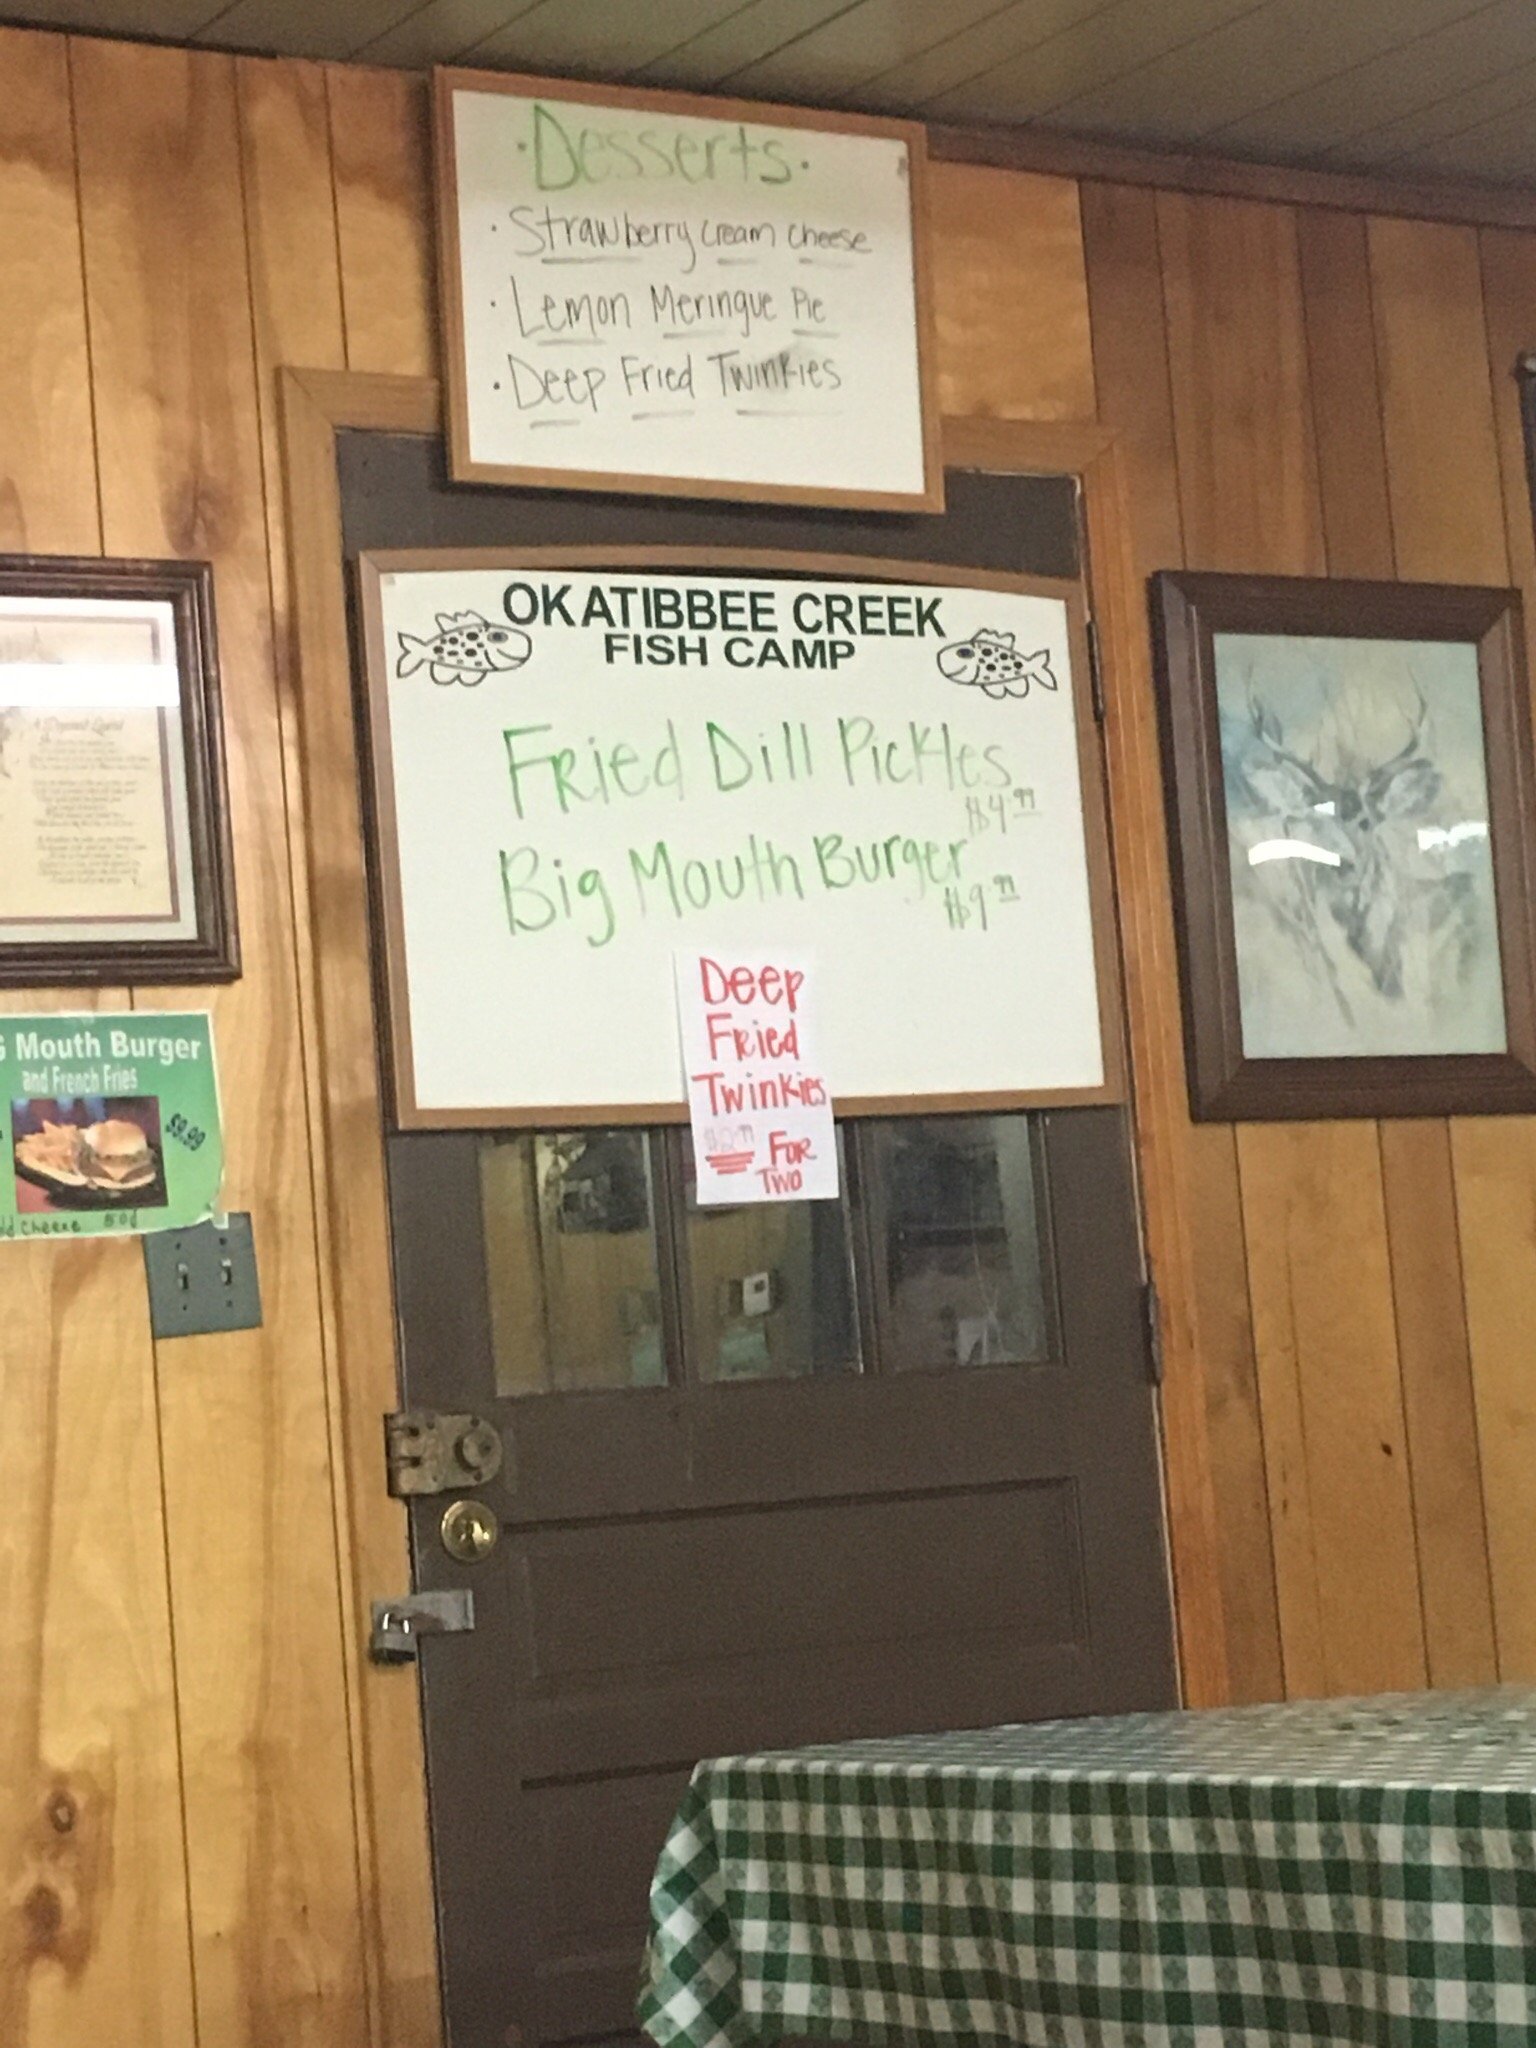 ·Desserts·
· Strawberry cream cheese
· Lemon Meringue Pie
· Deep Fried Twinkies
OKATIBBEE CREEK
FISH CAMP
Fried Dill Pickles
$4.99
Big Mouth Burger
$9.99
Deep
Fried
Twinkies
$2.99 For
Two
Mouth Burger
and French Fries
$9.99
Cheese 50¢